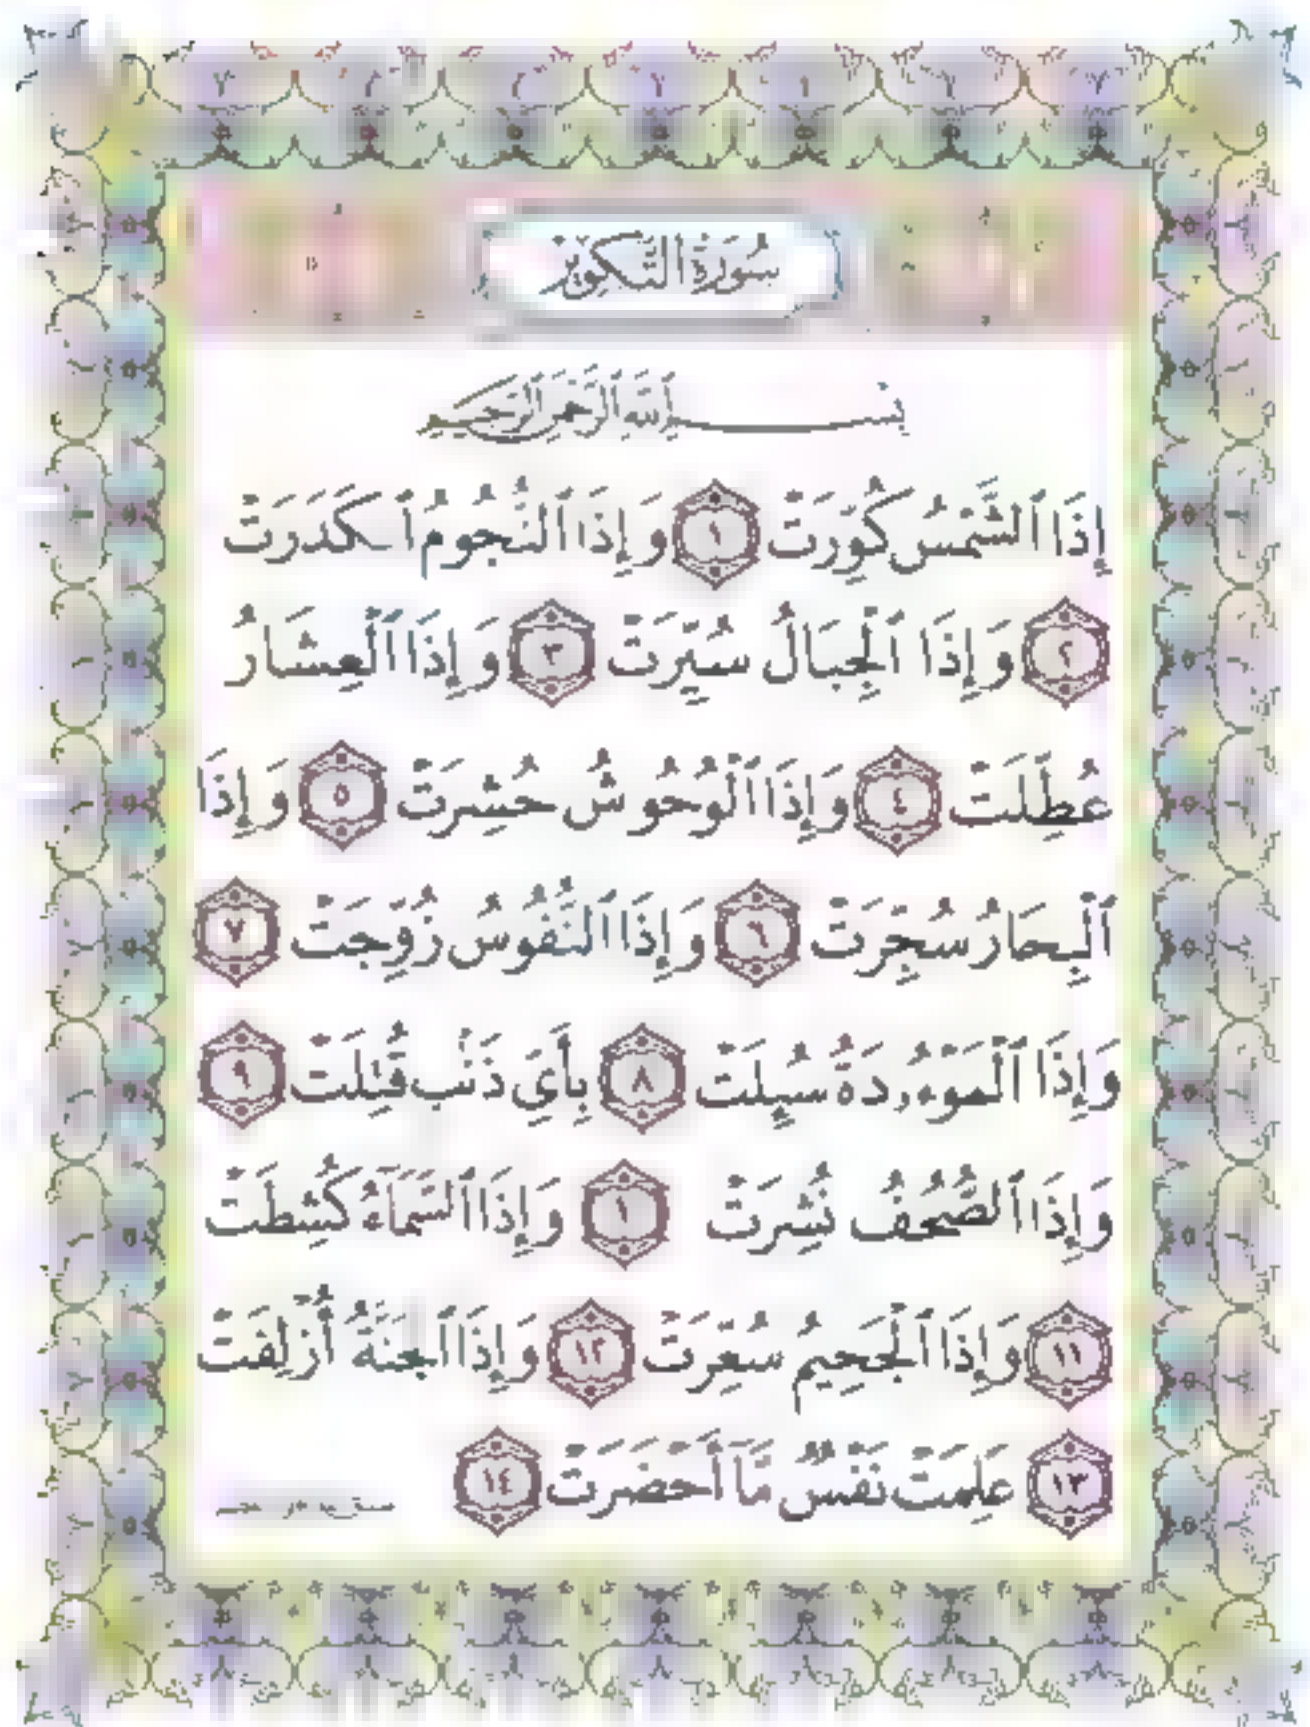 سُورَةُ التَّكْوِيرِ
بِسْمِ ٱللَّهِ ٱلرَّحْمَٰنِ ٱلرَّحِيمِ
إِذَا ٱلشَّمْسُ كُوِّرَتْ ١ وَإِذَا ٱلنُّجُومُ ٱنكَدَرَتْ
٢ وَإِذَا ٱلْجِبَالُ سُيِّرَتْ ٣ وَإِذَا ٱلْعِشَارُ
عُطِّلَتْ ٤ وَإِذَا ٱلْوُحُوشُ حُشِرَتْ ٥ وَإِذَا
ٱلْبِحَارُ سُجِّرَتْ ٦ وَإِذَا ٱلنُّفُوسُ زُوِّجَتْ ٧
وَإِذَا ٱلْمَوْءُۥدَةُ سُئِلَتْ ٨ بِأَىِّ ذَنۢبٍ قُتِلَتْ ٩
وَإِذَا ٱلصُّحُفُ نُشِرَتْ ١ وَإِذَا ٱلسَّمَآءُ كُشِطَتْ
١١ وَإِذَا ٱلْجَحِيمُ سُعِّرَتْ ١٢ وَإِذَا ٱلْجَنَّةُ أُزْلِفَتْ
١٣ عَلِمَتْ نَفْسٌ مَّآ أَحْضَرَتْ ١٤